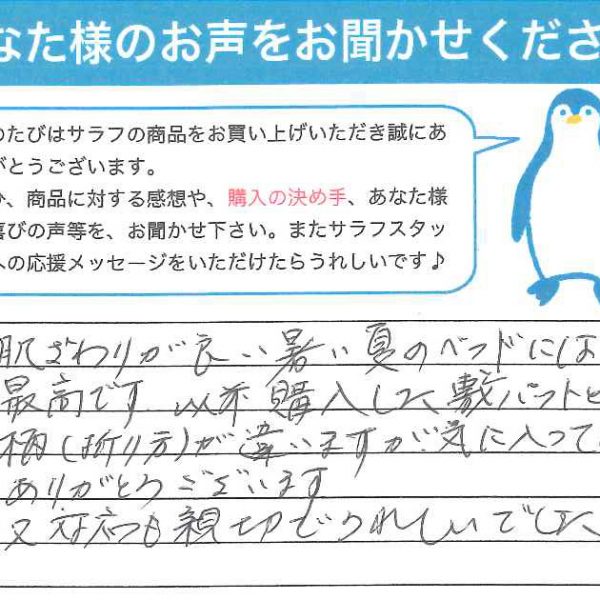 なた様のお声をお聞かせくださ
のたびはサラフの商品をお買い上げいただき誠にあ
がとうございます。
ひ、商品に対する感想や、購入の決め手、あなた様
喜びの声等を、お聞かせ下さい。またサラフスタッ
への応援メッセージをいただけたらうれしいです♪
肌ざわりが良い暑い夏のベッドには
最高です 以前購入した敷パットと
柄(折り方)が違いますが気に入って
ありがとうございます
又対応も親切でうれしいでした